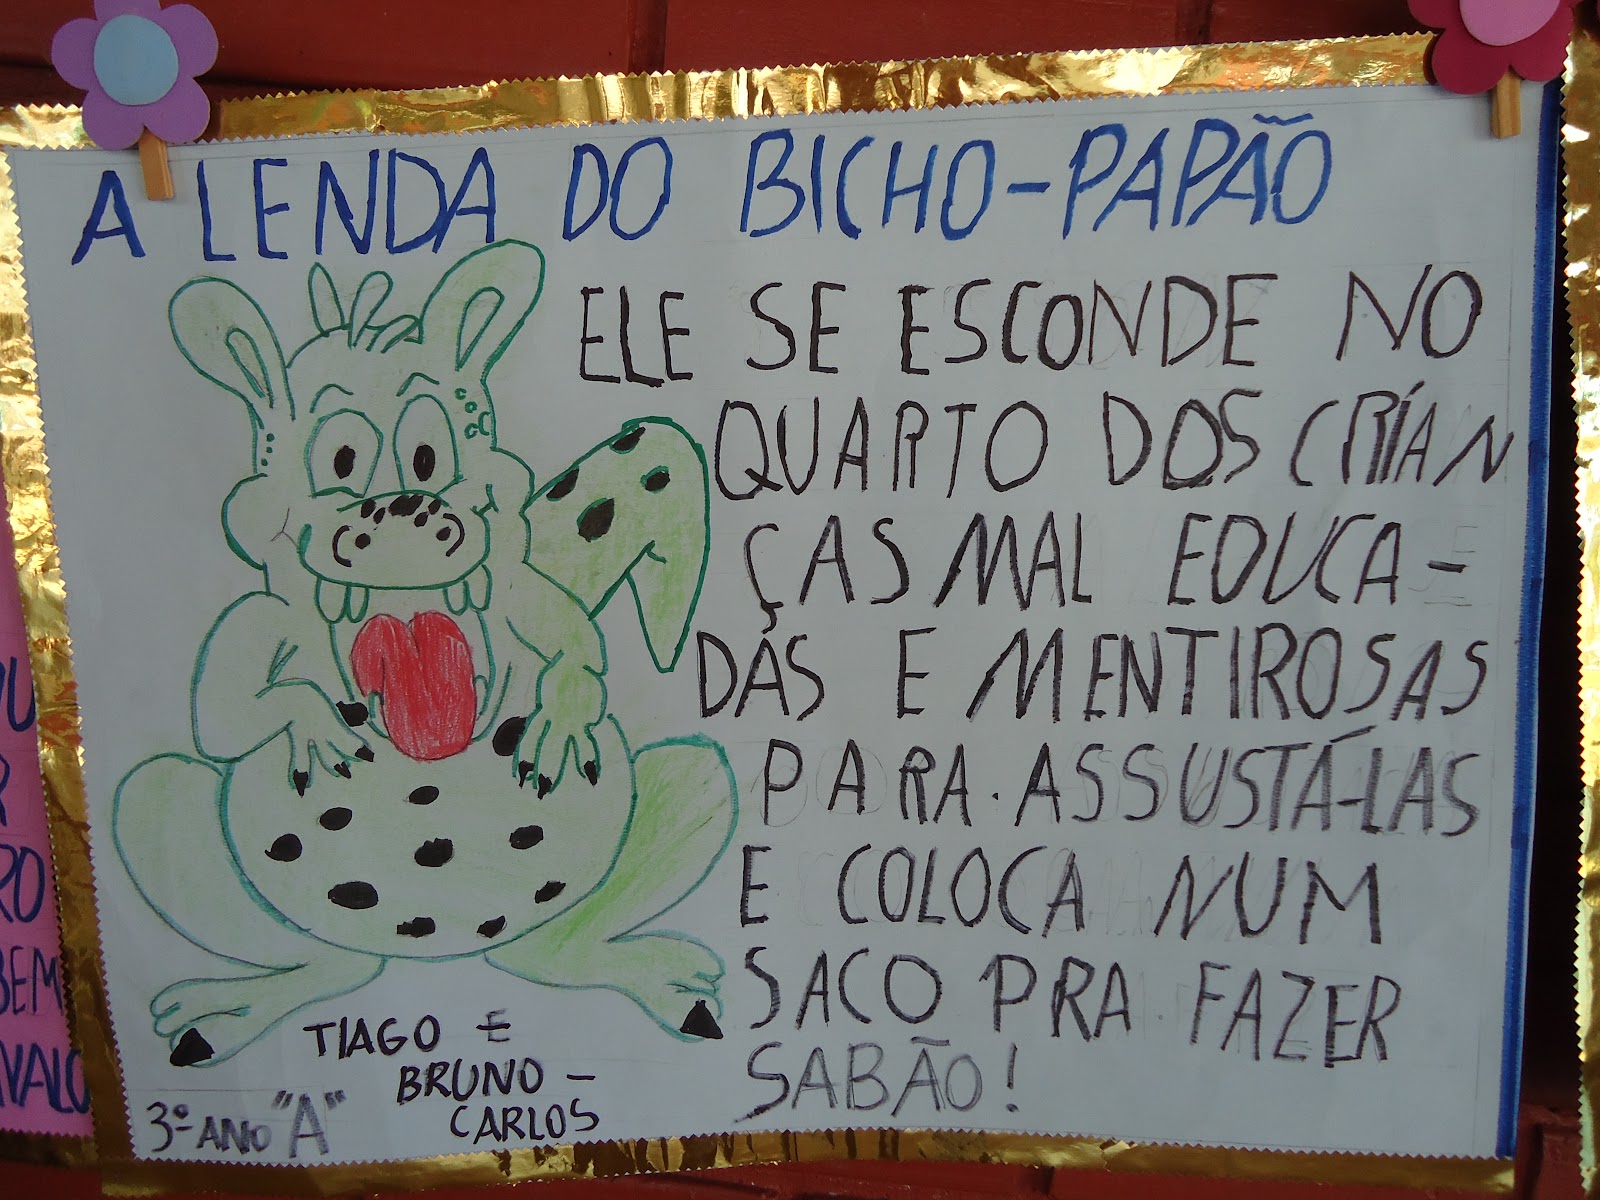 A LENDA DO BICHO-PAPÃO
ELE SE ESCONDE NO
QUARTO DOS CRÍAN
ÇAS MAL EDUCA-
DAS E MENTIROSAS
PARA.ASSUSTÁ-LAS
E COLOCA NUM
SACO PRA FAZER
SABÃO!
TIAGO E
BRUNO -
CARLOS
3º ANO "A"
RO
BEM